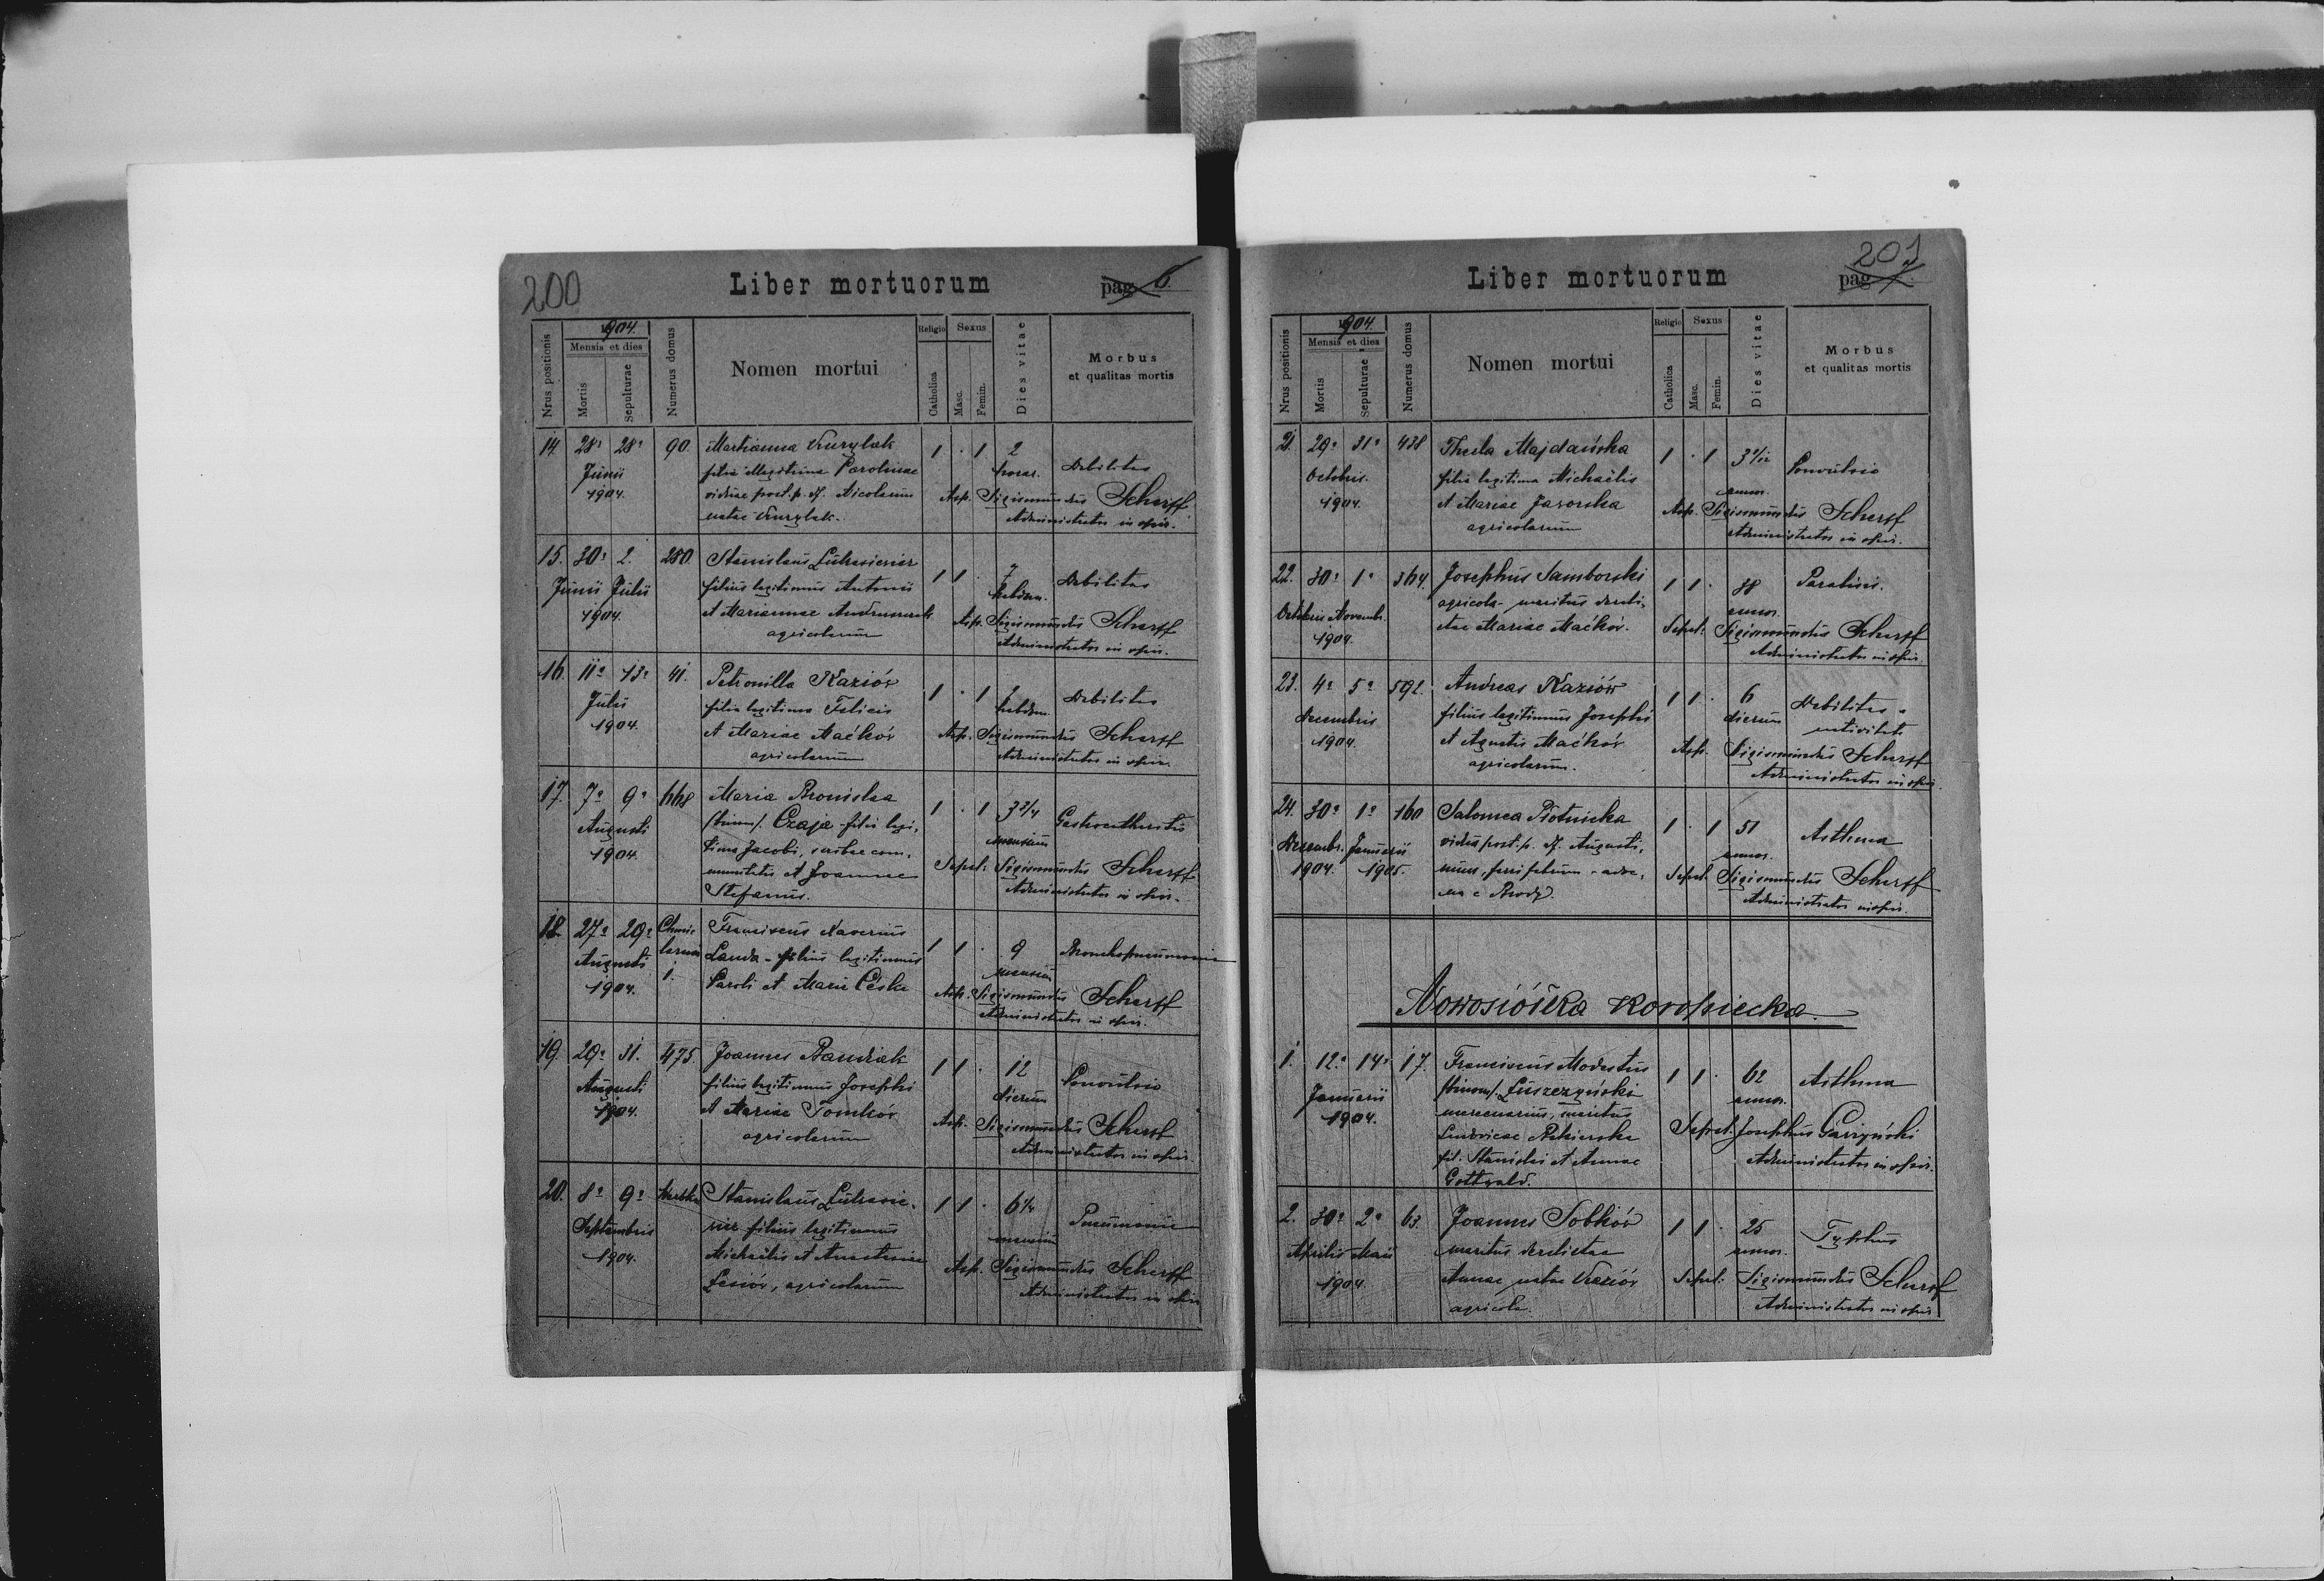 200
Liber mortuorum
pag 6.
Nrus positionis
1904.
Mensis et dies
Mortis
Sepulturae
Numerus domus
Nomen mortui
Religio
Catholica
Sexus
Masc.
Femin.
Dies vitae
Morbus
et qualitas mortis
14. 28ª 28ª 90.
Junii
1904.
Marianna Kurylak
filia illegitima Carolinae
viduae post. p. df. Nicolaum
natae Kurylak.
1 . 1 2
horar.
Debilitas
Asp. Sigismundus Scherff
Administrator in spir.
15. 30ª 2. 280.
Junii Julii
1904.
Stanislaus Lukasiewicz
filius legitimus Antonii
et Mariannae
agricolarum
1 1 . 7
hebdom.
Debilitas
Asp. Sigismundus Scherff
Administrator in spir.
16. 11ª 13ª 41.
Julii
1904.
Petronilla Kaziów
filia legitima Felicis
et Mariae Maćków
agricolarum
1 . 1
hebdom.
Debilitas
Asp. Sigismundus Scherff
Administrator in spir.
17. 7ª 9ª 668
Augusti
1904.
Maria Bronislaa
/binom/. Czaja - filia legi,
tima Jacobi, scribae com,
munitatis et Joannae
Stefanus.
1 . 1 3 2/4
mensium
Sepel: Sigismundus Scherff
Administrator in spir.
18. 27ª 29ª
Augusti
1904.
1.
Franciscus Xaverius
Lauda - filius legitimus
Caroli et Mariae Ceska
1 1 . 9
mensium
Bronchopneumonia
Asp. Sigismundus Scherff
Administrator in spir.
19. 29ª 31. 475.
Augusti
1904.
Joannes Bandriak
filius legitimus Josephi
et Mariae Tomków
agricolarum
1 1 . 12
dierum
Convulsio
Asp. Sigismundus Scherff
Administrator in spir.
20. 8ª 9ª
Septembris
1904.
Stanislaus Lukasie-
wicz filius legitimus
Michaëlis et Anastasiae
Lesiów, agricolarum
1 1 . 6 1/4
mensium
Pneumonia
Asp. Sigismundus Scherff
Administrator in spir.
201
Liber mortuorum
pag 7.
Nrus positionis
1904.
Mensis et dies
Mortis
Sepulturae
Numerus domus
Nomen mortui
Religio
Catholica
Sexus
Masc.
Femin.
Dies vitae
Morbus
et qualitas mortis
21. 29ª 31ª 438
Octobris.
1904.
Thecla Majdańska
filia legitima Michaëlis
et Mariae Jaworska
agricolarum
1 . 1
annor.
Convulsio
Asp. Sigismundus Scherff
Administrator in spir.
22. 30ª 1ª 364.
Octobris Novembr.
1904.
Josephus Samborski
agricola - maritus dereli,
ctae Mariae Maćków.
1 1 . 38
annor.
Paralisis.
Sepel: Sigismundus Scherff
Administrator in spir.
23. 4ª 5ª 592.
Decembris
1904.
Andreas Kaziów
filius legitimus Josephi
et Agnetis Maćków
agricolarum.
1 1 . 6
dierum
Debilitas a
nativitate
Asp. Sigismundus Scherff
Administrator in spir.
24. 30ª 1ª 160
Decembr. Januarii
1904. 1905.
Salomea Piotnicka
vidua post. p. df. Augusti,
num, advena
e Brody.
1 . 1 51
annor.
Asthma
Sepel. Sigismundus Scherff
Administrator in spir.
Nowosiółka Koropiecka.
1. 12ª 14ª 17.
Januarii
1904.
Franciscus Modestus
/binom/. Luszczyński
mercenarius, maritus
Ludovicae
fil. Stanislai et Annae
Gottwald.
1 1 . 62
annor.
Asthma
Sepel. Josephus
Administrator in spir.
2. 30ª 2ª 63.
Aprilis Maii
1904.
Joannes Sobków
maritus derelictae
Annae natae Kaziów
agricola.
1 1 . 25
annor.
Typhus
Sepel: Sigismundus Scherff
Administrator in spir.